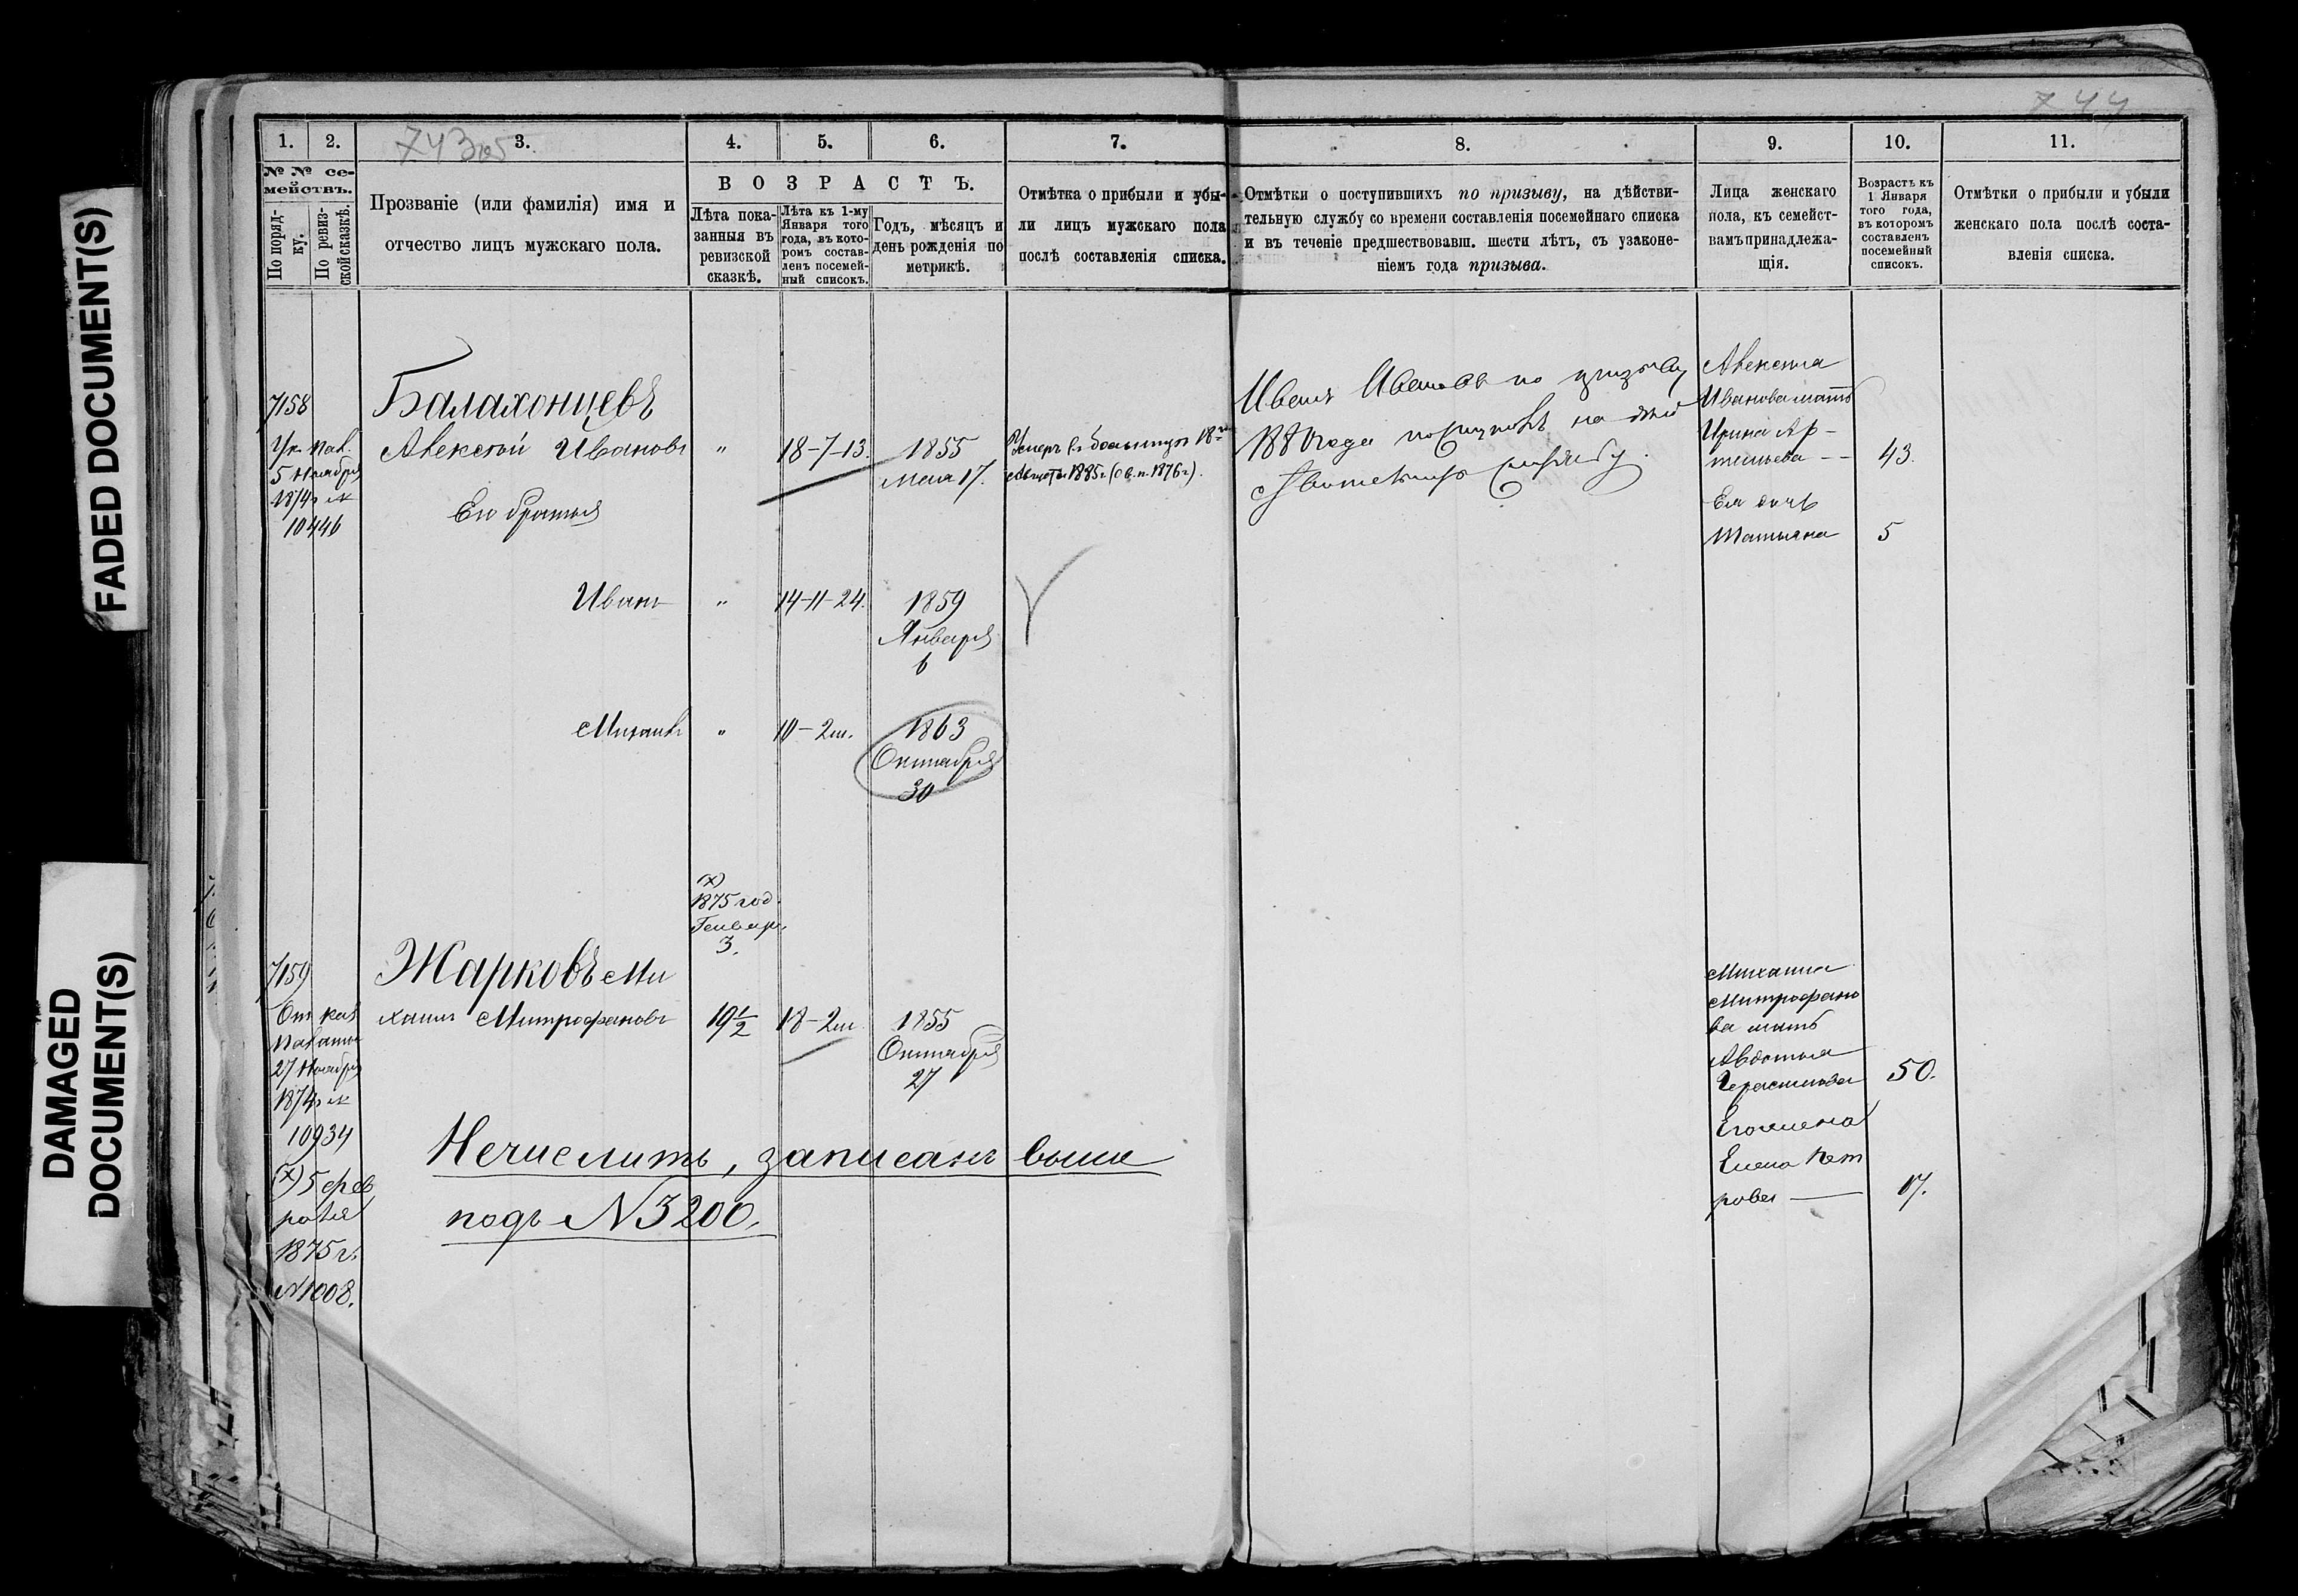 FADED DOCUMENT(S)
DAMAGED
DOCUMENT(S)
744
743об
1. 2. 3. 4. 5. 6. 7. 8. 9. 10. 11.
№ № се-
мействъ.
По поряд-
ку.
По ревиз-
ской сказкѣ.
Прозваніе (или фамилія) имя и
отчество лицъ мужскаго пола.
ВОЗРАСТЪ.
Лѣта пока-
занныя въ
ревизской
сказкѣ.
Лѣта къ 1-му
Января того
года, въ кото-
ромъ состав-
ленъ посемей-
ный списокъ.
Годъ, мѣсяцъ и
день рожденія по
метрикѣ.
Отмѣтка о прибыли и убы-
ли лицъ мужскаго пола
послѣ составленія списка.
Отмѣтки о поступившихъ по призыву, на дѣйстви-
тельную службу со времени составленія посемейнаго списка
и въ теченіе предшествовавш. шести лѣтъ, съ узаконе-
ніемъ года призыва.
Лица женскаго
пола, къ семейст-
вамъ принадлежа-
щія.
Возрастъ къ
1 Января
того года,
въ которомъ
составленъ
посемейный
списокъ.
Отмѣтки о прибыли и убыли
женскаго пола послѣ соста-
вленія списка.
7158
Ук. пал.
5 Ноября
1874 г №
10446
Балахонцевъ
Алексѣй Ивановъ
"
18-7-13.
1855
Мая 17.
Умеръ въ больницѣ 18го
Августа 1885 г. (о в. п. 1876 г.).
Иванъ Ивановъ по призыву
1880 года поступилъ на дѣй
ствительную службу.
Алексѣя
Иванова мать
Ирина Ар-
темьева -- 43.
Ея дочь
Татьяна 5
Его братья
Иванъ
"
14-11-24.
1859
Января
6
Михаилъ
"
10-2м.
1863
Октября
30
(х)
1875 год.
Генвар.
3.
7159
От каз
палаты
27 Ноября
1874 г №
10934
(х) 5 фев
раля
1875 г.
№1008.
Жарковъ Ми
хаилъ Митрофановъ
19½
18-2м.
1855
Октября
27
Нечислить, записанъ выше
подъ №3200.
Михаила
Митрофано
ва мать
Авдотья
Герасимова 50.
Его жена
Елена Пет
рова — 17.